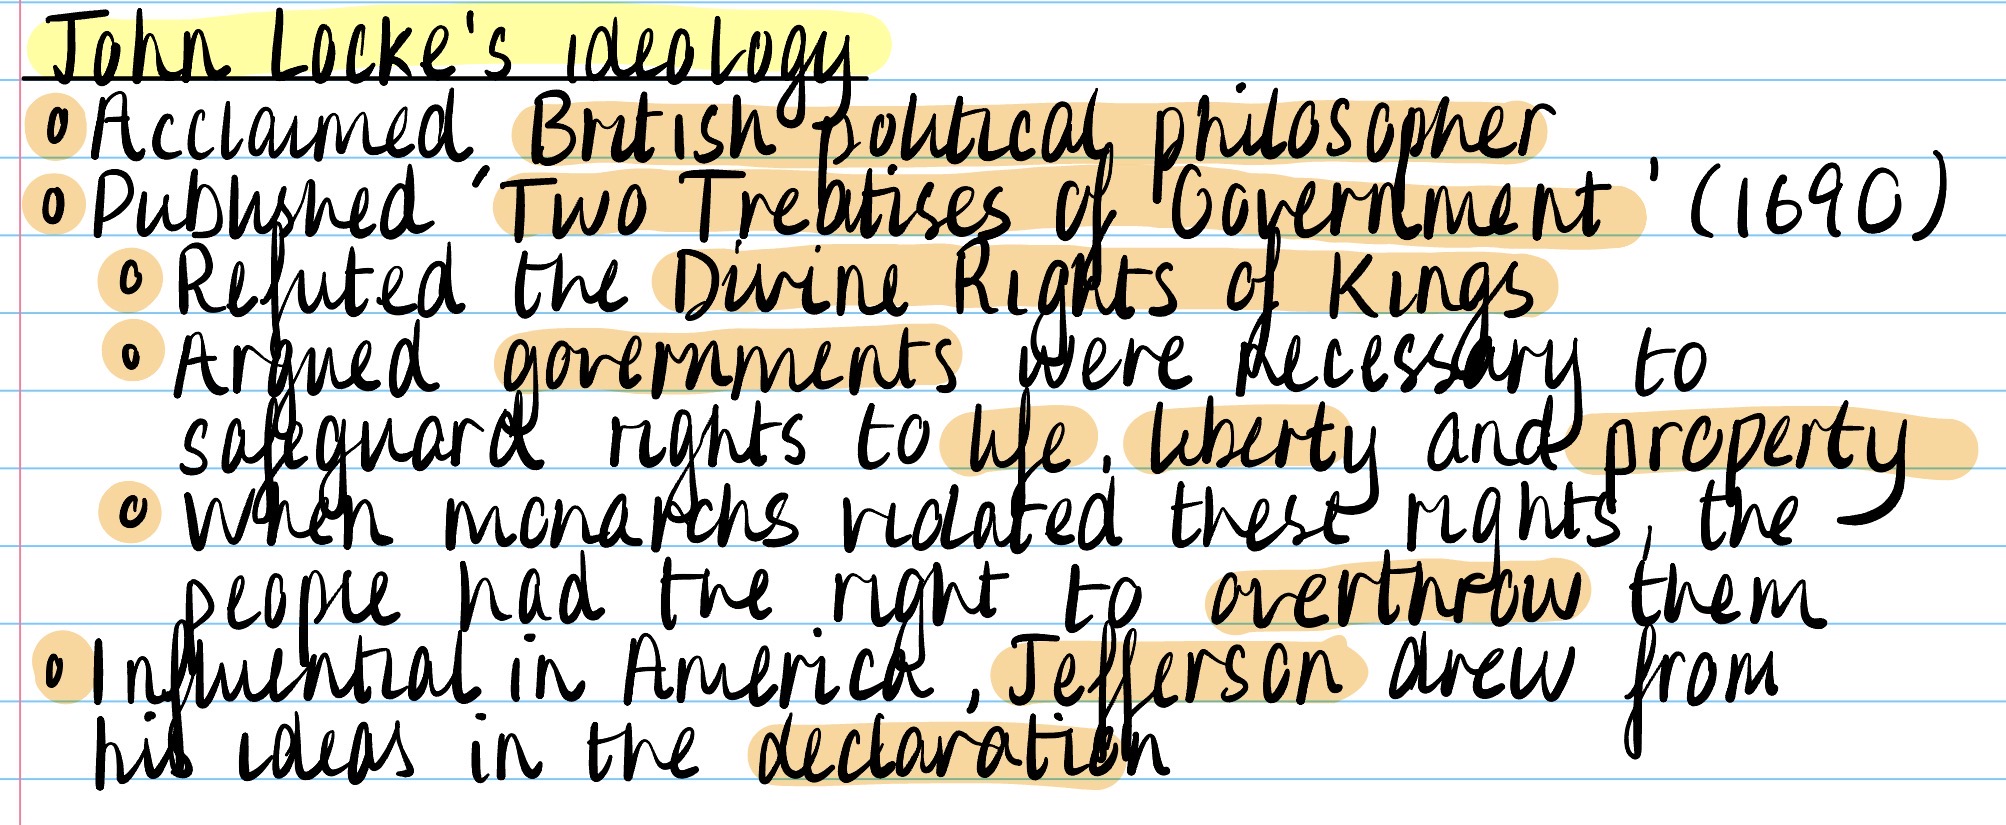 John Locke's ideology
o Acclaimed British political philosopher
o Published 'Two Treatises of Government' (1690)
o Refuted the Divine Rights of Kings
o Argued governments were necessary to
safeguard rights to life, liberty and property
o When monarchs violated these rights, the
people had the right to overthrow them
o Influential in America, Jefferson drew from
his ideas in the declaration